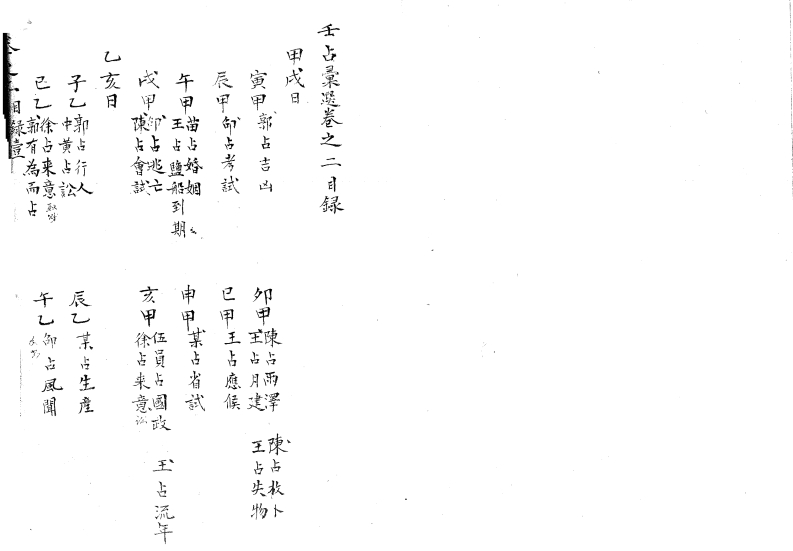 壬占彙選卷之二目錄
甲戌日
寅甲 郭占吉凶
卯甲 陳占雨澤 王占月建 陳占枚卜 王占失物
辰甲 邵占考試
巳甲 王占應候
午甲 苗占婚姻 王占鹽船到期
申甲 某占省試
戌甲 邵占逃亡 陳占會試
亥甲 伍員占國政 徐占来意 王占流年
乙亥日
子乙 郭占行人 中黄占訟
辰乙 某占生產
巳乙 徐占来意 郭有為而占
午乙 邵占風聞
目錄壹